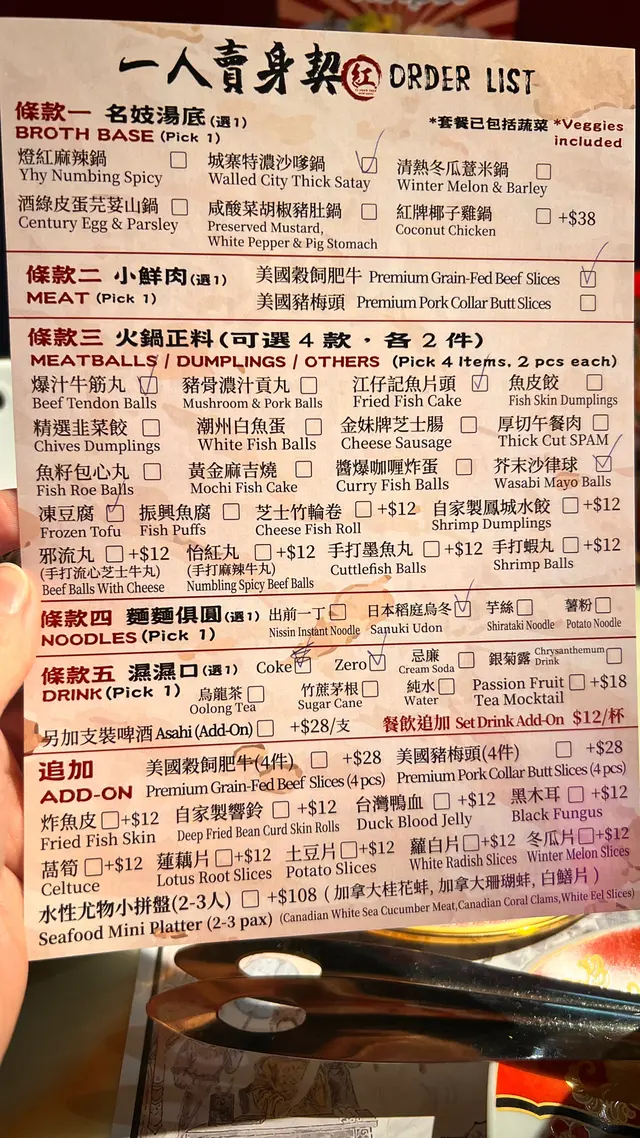 一人賣身契 紅 ORDER LIST
條款一 名妓湯底(選1) *套餐已包括蔬菜 *Veggies
BROTH BASE (Pick 1) included
燈紅麻辣鍋 □ 城寨特濃沙嗲鍋 ☑ 清熱冬瓜薏米鍋 □
Yhy Numbing Spicy Walled City Thick Satay Winter Melon & Barley
酒綠皮蛋芫荽山鍋 □ 咸酸菜胡椒豬肚鍋 □ 紅牌椰子雞鍋 □ +$38
Century Egg & Parsley Preserved Mustard, Coconut Chicken
White Pepper & Pig Stomach
條款二 小鮮肉(選1) 美國穀飼肥牛 Premium Grain-Fed Beef Slices ☑
MEAT (Pick 1) 美國豬梅頭 Premium Pork Collar Butt Slices □
條款三 火鍋正料(可選4款，各2件)
MEATBALLS / DUMPLINGS / OTHERS (Pick 4 Items, 2 pcs each)
爆汁牛筋丸 ☑ 豬骨濃汁貢丸 □ 江仔記魚片頭 ☑ 魚皮餃 □
Beef Tendon Balls Mushroom & Pork Balls Fried Fish Cake Fish Skin Dumplings
精選韭菜餃 □ 潮州白魚蛋 □ 金妹牌芝士腸 □ 厚切午餐肉 □
Chives Dumplings White Fish Balls Cheese Sausage Thick Cut SPAM
魚籽包心丸 □ 黃金麻吉燒 □ 醬爆咖喱炸蛋 □ 芥末沙律球 ☑
Fish Roe Balls Mochi Fish Cake Curry Fish Balls Wasabi Mayo Balls
凍豆腐 ☑ 振興魚腐 □ 芝士竹輪卷 □ +$12 自家製鳳城水餃 □ +$12
Frozen Tofu Fish Puffs Cheese Fish Roll Shrimp Dumplings
邪流丸 □ +$12 怡紅丸 □ +$12 手打墨魚丸 □ +$12 手打蝦丸 □ +$12
(手打流心芝士牛丸) (手打麻辣牛丸) Cuttlefish Balls Shrimp Balls
Beef Balls With Cheese Numbling Spicy Beef Balls
條款四 麵麵俱圓(選1) 出前一丁 □ 日本稻庭烏冬 ☑ 芋絲 □ 薯粉 □
NOODLES (Pick 1) Nissin Instant Noodle Sanuki Udon Shirataki Noodle Potato Noodle
條款五 濕濕口(選1) Coke Zero ☑ 忌廉 □ 銀菊露 Chrysanthemum □
Cream Soda Drink
DRINK (Pick 1) 烏龍茶 □ 竹蔗茅根 □ 純水 □ Passion Fruit □ +$18
Oolong Tea Sugar Cane Water Tea Mocktail
另加支裝啤酒 Asahi (Add-On) □ +$28/支 餐飲追加 Set Drink Add-On $12/杯
追加 美國穀飼肥牛(4件) □ +$28 美國豬梅頭(4件) □ +$28
ADD-ON Premium Grain-Fed Beef Slices (4 pcs) Premium Pork Collar Butt Slices (4 pcs)
炸魚皮 □ +$12 自家製響鈴 □ +$12 台灣鴨血 □ +$12 黑木耳 □ +$12
Fried Fish Skin Deep Fried Bean Curd Skin Rolls Duck Blood Jelly Black Fungus
萵筍 □ +$12 蓮藕片 □ +$12 土豆片 □ +$12 蘿白片 □ +$12 冬瓜片 □ +$12
Celtuce Lotus Root Slices Potato Slices White Radish Slices Winter Melon Slices
水性尤物小拼盤(2-3人) □ +$108 (加拿大桂花蚌, 加拿大珊瑚蚌, 白鱔片)
Seafood Mini Platter (2-3 pax) (Canadian White Sea Cucumber Meat, Canadian Coral Clams, White Eel Slices)